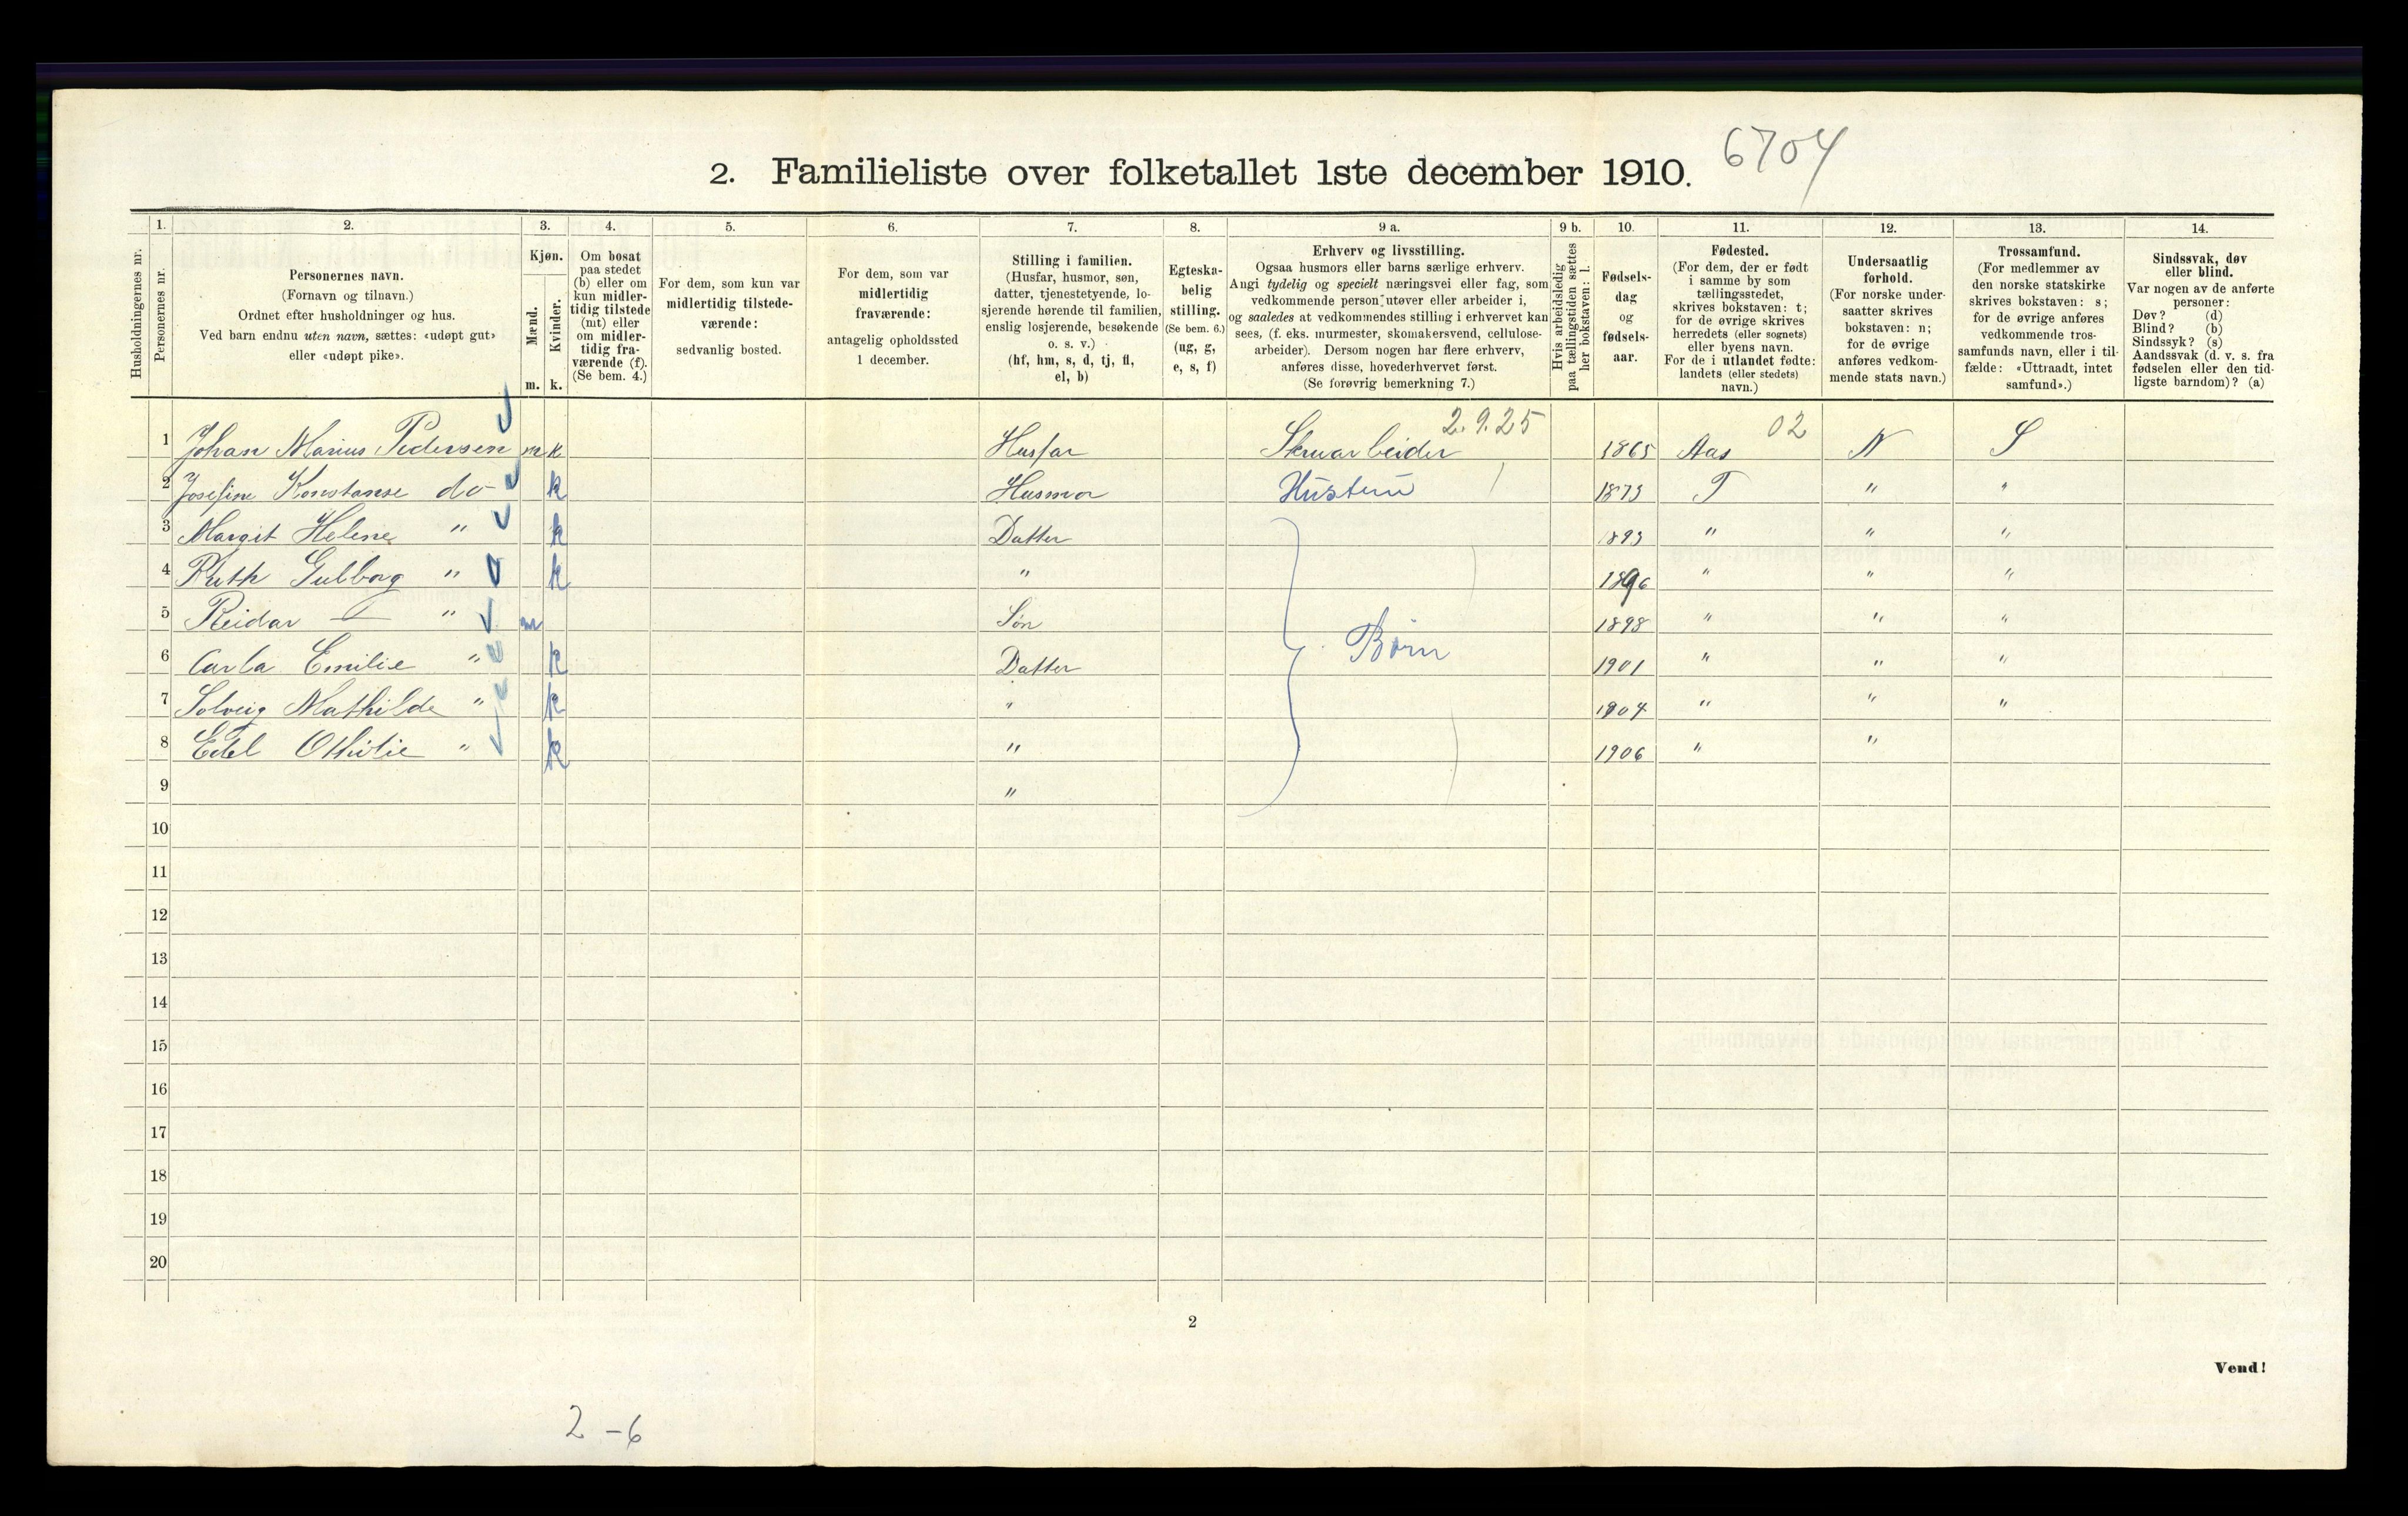 6704
2. Familieliste over folketallet 1ste december 1910.
1. 2. 3. 4. 5. 6. 7. 8. 9 a. 9 b. 10. 11. 12. 13. 14.
Husholdningernes nr.
Personernes nr.
Personernes navn.
(Fornavn og tilnavn.)
Ordnet efter husholdninger og hus.
Ved barn endnu uten navn, sættes: «udøpt gut»
eller «udøpt pike».
Kjøn.
Mænd.
Kvinder.
m. k.
Om bosat
paa stedet
(b) eller om
kun midler-
tidig tilstede
(mt) eller
om midler-
tidig fra-
værende (f).
(Se bem. 4.)
For dem, som kun var
midlertidig tilstede-
værende:
sedvanlig bosted.
For dem, som var
midlertidig
fraværende:
antagelig opholdssted
1 december.
Stilling i familien.
(Husfar, husmor, søn,
datter, tjenestetyende, lo-
sjerende hørende til familien,
enslig losjerende, besøkende
o. s. v.)
(hf, hm, s, d, tj, fl,
el, b)
Egteska-
belig
stilling.
(Se bem. 6.)
(ug, g,
e, s, f)
Erhverv og livsstilling.
Ogsaa husmors eller barns særlige erhverv.
Angi tydelig og specielt næringsvei eller fag, som
vedkommende person utøver eller arbeider i,
og saaledes at vedkommendes stilling i erhvervet kan
sees, (f. eks. murmester, skomakersvend, cellulose-
arbeider). Dersom nogen har flere erhverv,
anføres disse, hovederhvervet først.
(Se forøvrig bemerkning 7.)
Hvis arbeidsledig
paa tællingstiden sættes
her bokstaven: l.
Fødsels-
dag
og
fødsels-
aar.
Fødested.
(For dem, der er født
i samme by som
tællingsstedet,
skrives bokstaven: t;
for de øvrige skrives
herredets (eller sognets)
eller byens navn.
For de i utlandet fødte:
landets (eller stedets)
navn.)
Undersaatlig
forhold.
(For norske under-
saatter skrives
bokstaven: n;
for de øvrige
anføres vedkom-
mende stats navn.)
Trossamfund.
(For medlemmer av
den norske statskirke
skrives bokstaven: s;
for de øvrige anføres
vedkommende tros-
samfunds navn, eller i til-
fælde: «Uttraadt, intet
samfund».)
Sindssvak, døv
eller blind.
Var nogen av de anførte
personer:
Døv? (d)
Blind? (b)
Sindssyk? (s)
Aandssvak (d. v. s. fra
fødselen eller den tid-
ligste barndom)? (a)
2.9.25 02
1 Johan Marius Pedersen m k Husfar 1865 Aas N S
2 Josefine Konstanse do k Husmor Hustru 1873 T " "
3 Margit Helene " k Datter 1893 " " "
4 Ruth Gulborg " k " 1896 " " "
5 Reidar — " m Søn 1898 " " "
6 Carla Emilie " k Datter Børn 1901 " " "
7 Solveig Mathilde " k " 1904 " " "
8 Edel Othilie " k " 1906 " "
9 "
10
11
12
13
14
15
16
17
18
19
20
2
Vend!
2-6